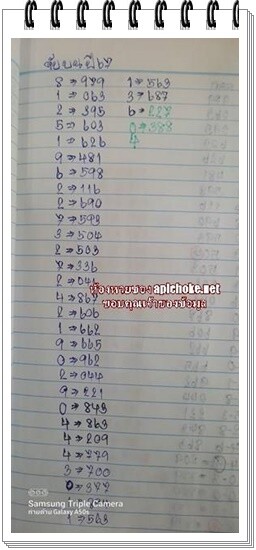 8 → 979
1 → 063
2 → 395
5 → 603
1 → 626
9 → 481
6 → 598
2 → 116
2 → 690
7 → 593
3 → 504
2 → 503
7 → 336
2 → 041
4 → 862
2 → 606
1 → 662
9 → 665
0 → 962
2 → 044
9 → 221
0 → 843
4 → 863
4 → 209
4 → 779
3 → 700
0 → 377
1 → 563
1 → 563
3 → 687
6 → 227
0 → 388
4
ห้องหวยซอง apichoke.net
ขอบคุณเจ้าของข้อมูล
Samsung Triple Camera
ถ่ายด้วย Galaxy A50s